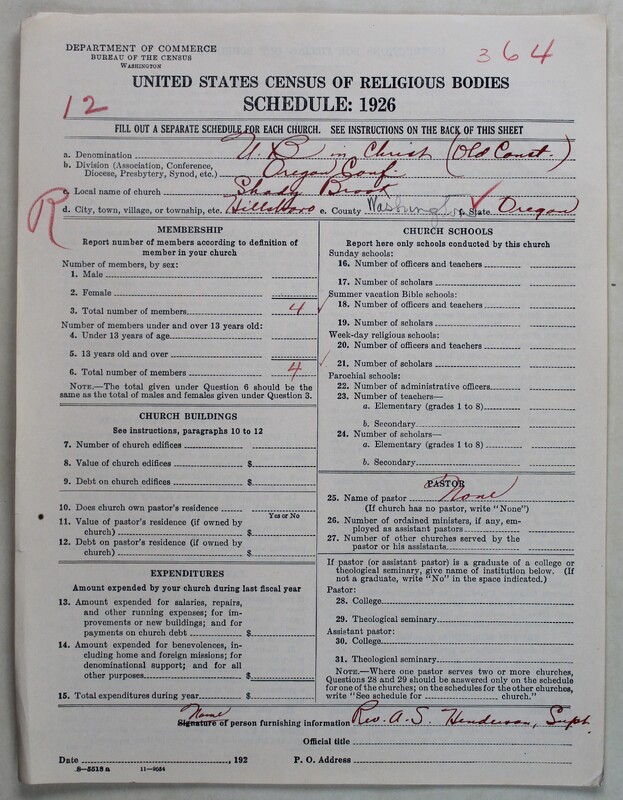 DEPARTMENT OF COMMERCE
BUREAU OF THE CENSUS
WASHINGTON
364
UNITED STATES CENSUS OF RELIGIOUS BODIES
SCHEDULE: 1926
12
FILL OUT A SEPARATE SCHEDULE FOR EACH CHURCH. SEE INSTRUCTIONS ON THE BACK OF THIS SHEET
a. Denomination U. B. in Christ (Old Const.)
b. Division (Association, Conference, Diocese, Presbytery, Synod, etc.) Oregon Conf.
c. Local name of church Shady Brook
R
d. City, town, village, or township, etc. Hillsboro e. County Washington f. State Oregon
MEMBERSHIP
Report number of members according to definition of
member in your church
Number of members, by sex:
1. Male
2. Female
3. Total number of members 4
Number of members under and over 13 years old:
4. Under 13 years of age
5. 13 years old and over
6. Total number of members 4
NOTE.—The total given under Question 6 should be
same as the total of males and females given under Question 3.
CHURCH BUILDINGS
See instructions, paragraphs 10 to 12
7. Number of church edifices
8. Value of church edifices $
9. Debt on church edifices $
10. Does church own pastor's residence
Yes or No
11. Value of pastor's residence (if owned by
church) $
12. Debt on pastor's residence (if owned by
church) $
EXPENDITURES
Amount expended by your church during last fiscal year
13. Amount expended for salaries, repairs,
and other running expenses; for im-
provements or new buildings; and for
payments on church debt $
14. Amount expended for benevolences, in-
cluding home and foreign missions; for
denominational support; and for all
other purposes $
15. Total expenditures during year $
CHURCH SCHOOLS
Report here only schools conducted by this church
Sunday schools:
16. Number of officers and teachers
17. Number of scholars
Summer vacation Bible schools:
18. Number of officers and teachers
19. Number of scholars
Week-day religious schools:
20. Number of officers and teachers
21. Number of scholars
Parochial schools:
22. Number of administrative officers
23. Number of teachers—
a. Elementary (grades 1 to 8)
b. Secondary
24. Number of scholars—
a. Elementary (grades 1 to 8)
b. Secondary
PASTOR
25. Name of pastor None
(If church has no pastor, write "None")
26. Number of ordained ministers, if any, em-
ployed as assistant pastors
27. Number of other churches served by the
pastor or his assistants
If pastor (or assistant pastor) is a graduate of a college or
theological seminary, give name of institution below. (If
not a graduate, write "No" in the space indicated.)
Pastor:
28. College
29. Theological seminary
Assistant pastor:
30. College
31. Theological seminary
NOTE.—Where one pastor serves two or more churches,
Questions 28 and 29 should be answered only on the schedule
for one of the churches; on the schedules for the other churches,
write "See schedule for church."
Name
Signature of person furnishing information Rev. A. S. Henderson, Supt.
Official title
Date , 192 P. O. Address
8—5518 a 11—9034